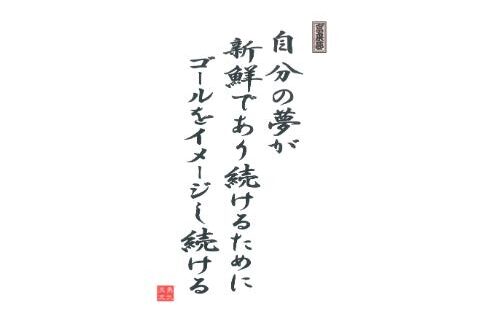 自分の夢が
新鮮であり続けるために
ゴールをイメージし続ける